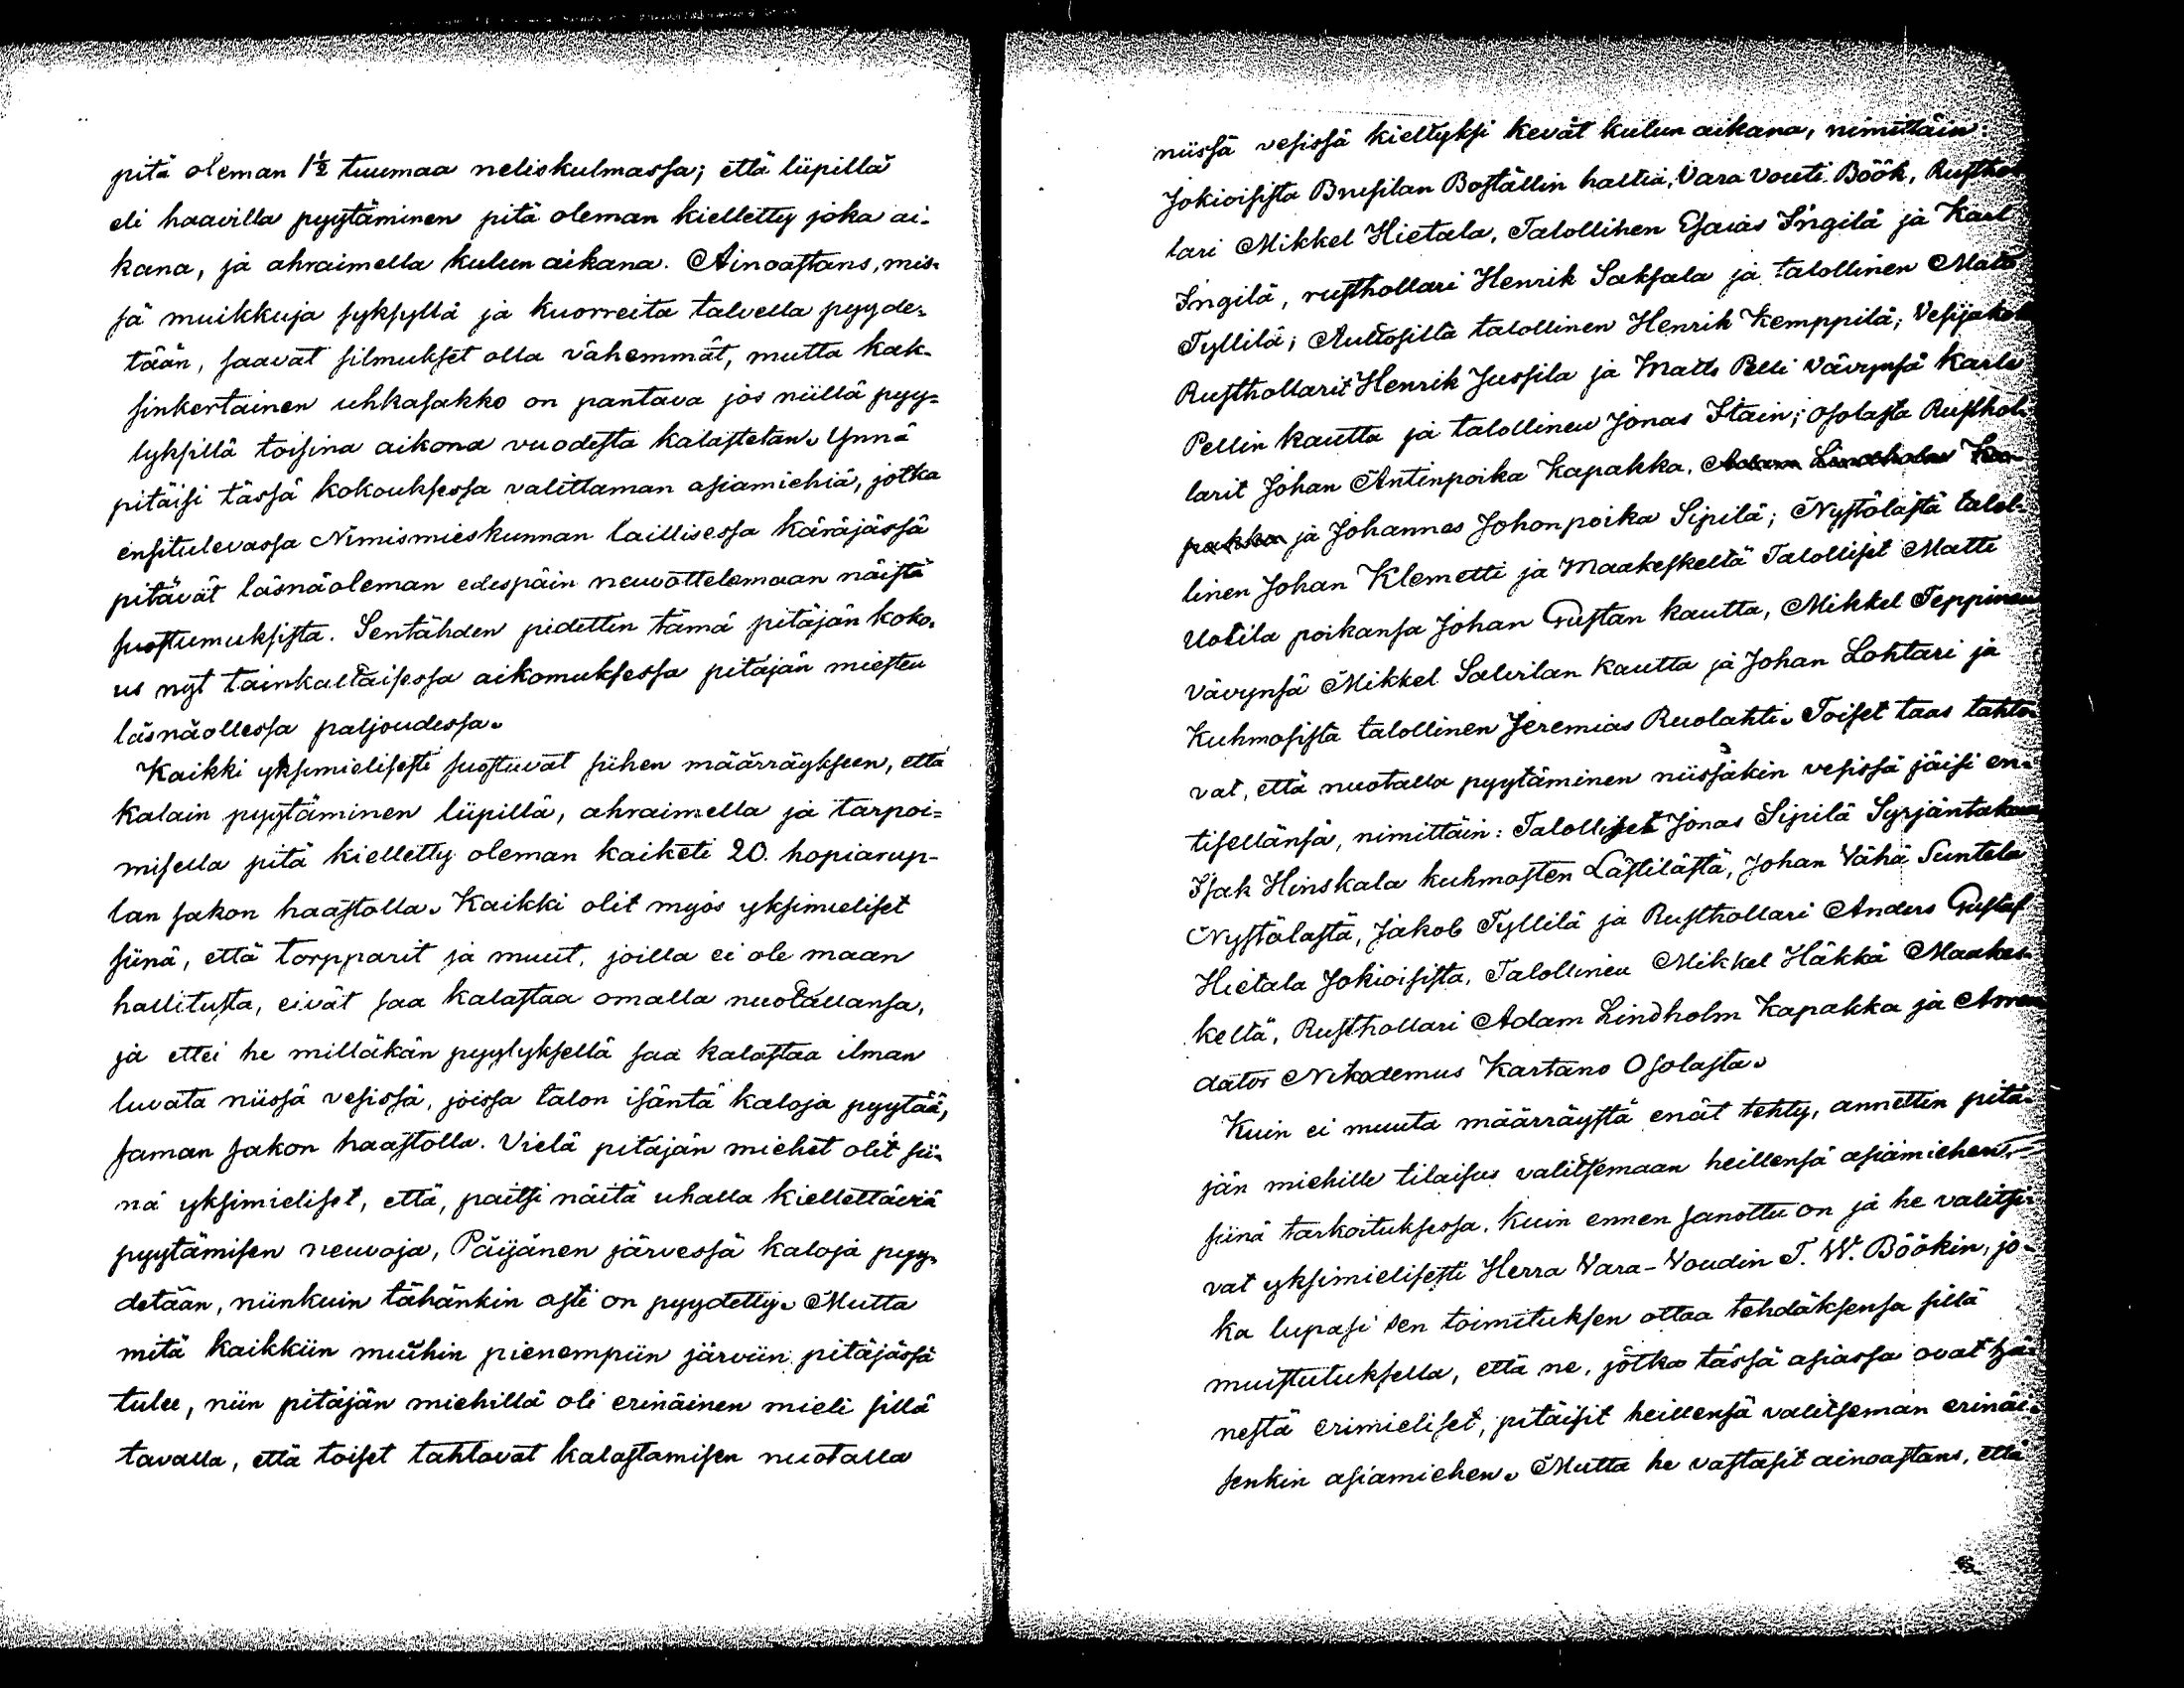 pitä oleman 1½ tuumaa neliskulmassa; että liipillä
eli haavilla pyytäminen pitä oleman kielletty joka ai-
kana, ja ahraimella kulun aikana. Ainoastans, mis-
sä muikkuja syksyllä ja kuorreita talvella pyyde-
tään, saavat silmukset olla vähemmät, mutta kak-
sinkertainen uhkasakko on pantava jos niillä pyy-
lyksillä toisina aikona vuodesta kalastetan. Ynnä
pitäisi tässä kokouksessa valittaman asiamiehiä, jotka
ensitulevassa Nimismieskunnan laillisessa käräjässä
pitävät läsnäoleman edespäin neuvottelemaan näistä
suostumuksista. Sentähden pidettin tämä pitäjän koko-
us nyt tainkaltaisessa aikomuksessa pitäjän miesten
läsnäollessa paljoudessa.
Kaikki yksimielisesti suostuvat siihen määrräykseen, että
kalain pyytäminen liipillä, ahraimella ja tarpoi-
misella pitä kielletty oleman kaiketi 20. hopiarup-
lan sakon haastolla. Kaikki olit myös yksimieliset
siinä, että torpparit ja muut, joilla ei ole maan
hallitusta, eivät saa kalastaa omalla nuotallansa,
ja ettei he milläkän pyylyksellä saa kalastaa ilman
luvata niissä vesissä, joissa talon isäntä kaloja pyytää,
saman sakon haastolla. Vielä pitäjän miehet olit sii-
nä yksimieliset, että, paitsi näitä uhalla kiellettäviä
pyytämisen neuvoja, Päijänen järvessä kaloja pyy-
detään, niinkuin tähänkin asti on pyydetty. Mutta
mitä kaikkiin muihin pienempiin järviin pitäjässä
tulee, niin pitäjän miehillä oli erinäinen mieli sillä
tavalla, että toiset tahtovat kalastamisen nuotalla
niissä vesissä kielletyksi kevät kulun aikana, nimittäin:
Jokioisista Brusilan Boställin haltia, Vara Vouti Böök, Rusthol
lari Mikkel Hietala, Talollinen Esaias Ingilä ja Karl
Ingilä, rusthollari Henrik Saksala ja talollinen Matts
Tyllilä; Auttosilta talollinen Henrik Kemppilä; Vesijako
Rusthollarit Henrik Jussila ja Matts Pelli Vävynsä Karle
Pellin kautta ja talollinen Jonas Stain; Osolasta Rusthol-
larit Johan Antinpoika Kapakka, Adam Lindholm Ka-
pakka ja Johannes Johonpoika Sipilä; Nystölästä talol-
linen Johan Klemetti ja Maakeskeltä Talolliset Matti
Uotila poikansa Johan Gustan kautta, Mikkel Teppinen
Vävynsä Mikkel Salvilan kautta ja Johan Lohtari ja
Kuhmosista talollinen Jeremias Ruolahti. Toiset taas tahto-
vat, että nuotalla pyytäminen niissäkin vesissä jäisi en-
tisellänsä, nimittäin: Talolliset Jonas Sipilä Syrjäntakaa,
Isak Hinskala kuhmosten Lästilästä, Johan Vähä Suntela
Nystölästä, Jakob Tyllilä ja Rusthollari Anders Gustaf
Hietala Jokioisista, Talollinen Mikkel Häkkä Maakes-
keltä, Rusthollari Adam Lindholm Kapakka ja Arren
dator Nikodemus Kartano Osolasta.
Kuin ei muuta määrräystä enät tehty, annettin pitä-
jän miehille tilaisus valitsemaan heillensä asiamiehen,
siinä tarkoituksessa, kuin ennen sanottu on ja he valitsi-
vat yksimielisesti Herra Vara-Voudin T. W. Böökin, jo-
ka lupasi sen toimituksen ottaa tehdäksensä sillä
muistutuksella, että ne, jotka tässä asiassa ovat hä-
nestä erimieliset, pitäisit heillensä valitseman erinäi-
senkin asiamiehen. Mutta he vastasit ainoastans, että